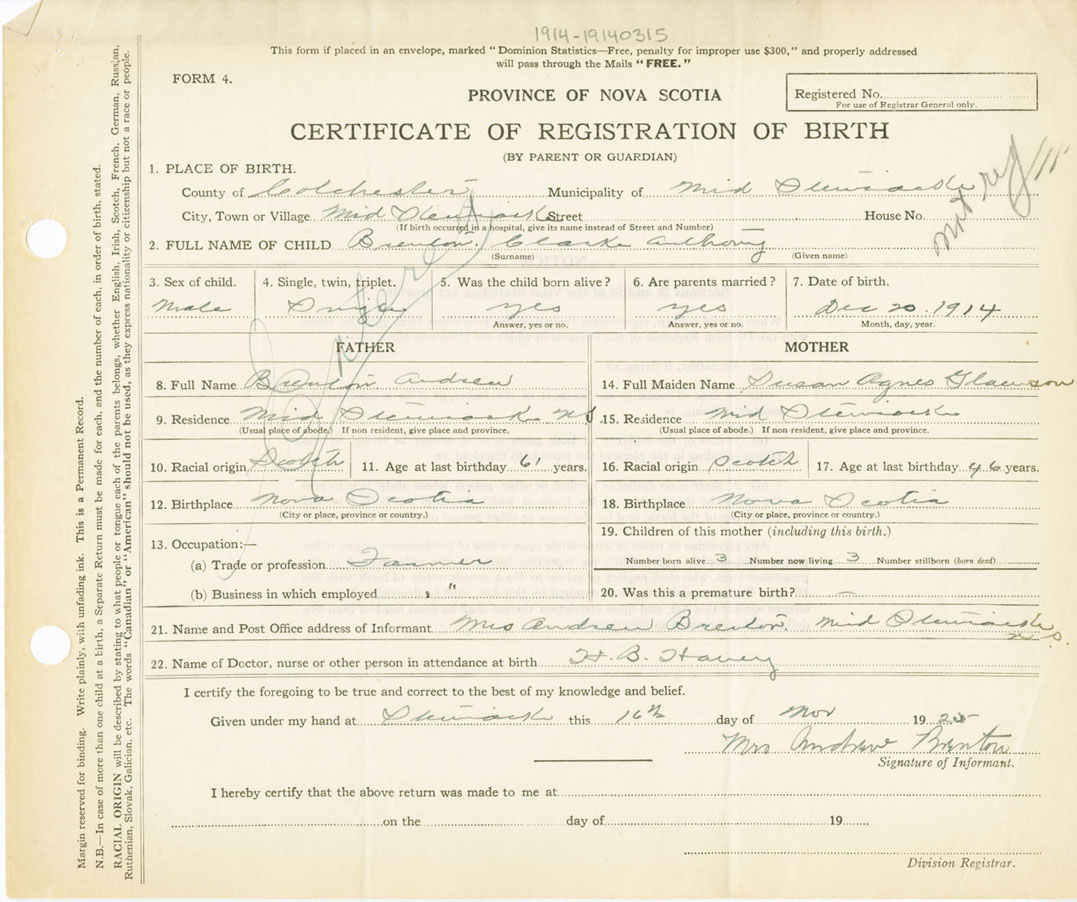 1914-19140315
This form if placed in an envelope, marked "Dominion Statistics—Free, penalty for improper use $300," and properly addressed
will pass through the Mails "FREE."
FORM 4.
Registered No.
For use of Registrar General only.
PROVINCE OF NOVA SCOTIA
CERTIFICATE OF REGISTRATION OF BIRTH
(BY PARENT OR GUARDIAN)
1. PLACE OF BIRTH.
County of Colchester Municipality of Mid Stewiacke
City, Town or Village Mid Stewiacke Street House No.
(If birth occurred in a hospital, give its name instead of Street and Number)
2. FULL NAME OF CHILD Brenton, Clarke Anthony
(Surname) (Given name)
3. Sex of child. 4. Single, twin, triplet. 5. Was the child born alive? 6. Are parents married? 7. Date of birth.
Male Single yes yes Dec 20. 1914
Answer, yes or no. Answer, yes or no. Month, day, year.
FATHER MOTHER
8. Full Name Brenton Andrew 14. Full Maiden Name Susan Agnes
9. Residence Mid Stewiacke NS 15. Residence Mid Stewiacke
(Usual place of abode.) If non resident, give place and province. (Usual place of abode.) If non resident, give place and province.
10. Racial origin Scotch 11. Age at last birthday 61 years. 16. Racial origin Scotch 17. Age at last birthday 46 years.
12. Birthplace Nova Scotia 18. Birthplace Nova Scotia
(City or place, province or country.) (City or place, province or country.)
13. Occupation:— 19. Children of this mother (including this birth.)
(a) Trade or profession Farmer Number born alive 3 Number now living 3 Number stillborn (born dead)
(b) Business in which employed " 20. Was this a premature birth? —
21. Name and Post Office address of Informant Mrs Andrew Brenton. Mid Stewiacke
N.S.
22. Name of Doctor, nurse or other person in attendance at birth H. B. Havey
I certify the foregoing to be true and correct to the best of my knowledge and belief.
Given under my hand at Stewiacke this 16th day of Nov 1925
Mrs Andrew Brenton
Signature of Informant.
I hereby certify that the above return was made to me at
on the day of 19
Division Registrar.
Margin reserved for binding. Write plainly, with unfading ink. This is a Permanent Record.
N.B.—In case of more than one child at a birth, a Separate Return must be made for each, and the number of each, in order of birth, stated.
RACIAL ORIGIN will be described by stating to what people or tongue each of the parents belongs, whether English, Irish, Scotch, French, German, Russian,
Ruthenian, Slovak, Galician, etc. The words "Canadian" or "American" should not be used, as they express nationality or citizenship but not a race or people.